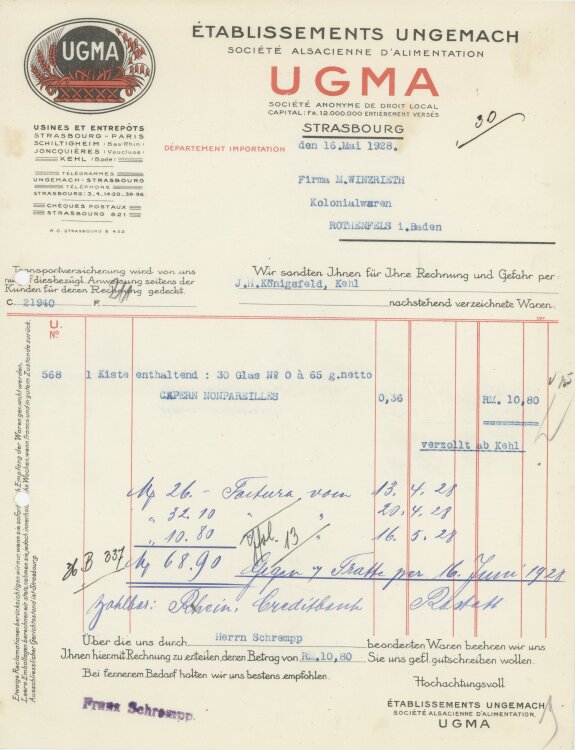 UGMA
ÉTABLISSEMENTS UNGEMACH
SOCIÉTÉ ALSACIENNE D'ALIMENTATION
UGMA
SOCIÉTÉ ANONYME DE DROIT LOCAL
CAPITAL: FR. 12.000.000 ENTIÈREMENT VERSÉS
STRASBOURG
30
USINES ET ENTREPÔTS
STRASBOURG - PARIS
SCHILTIGHEIM (Bas-Rhin)
JONCQUIÈRES (Vaucluse)
KEHL (Bade)
TÉLÉGRAMMES
UNGEMACH-STRASBOURG
TÉLÉPHONE
STRASBOURG: 3.4.14-20.39-96
CHÈQUES POSTAUX
STRASBOURG 621
R.C. STRASBOURG B 422
DÉPARTEMENT IMPORTATION
den 16.Mai 1928.
Firma M.WINZRIETH
Kolonialwaren
ROTHENFELS i.Baden
Transportversicherung wird von uns
nur auf diesbezügl. Anweisung seitens der
Kunden für deren Rechnung gedeckt.
C. 21940 F.
Wir sandten Ihnen für Ihre Rechnung und Gefahr per:
J.H.Königsfeld, Kehl
nachstehend verzeichnete Waren.
U.
Nº
568 1 Kiste enthaltend : 30 Glas Nº 0 à 65 g.netto
CAPERN NONPAREILLES 0,36 RM. 10,80
verzollt ab Kehl
M 26.- Factura vom 13.4.28
" 32.10 " " 20.4.28
" 10.80 " 16.5.28
M 68.90 Gegen Tratte per 16. Juni 1928
36 B 337
13
zahlbar: Rhein. Creditbank Rastatt
Über die uns durch Herrn Schrempp beorderten Waren beehren wir uns
Ihnen hiermit Rechnung zu erteilen, deren Betrag von RM.10,80 Sie uns gefl. gutschreiben wollen.
Bei fernerem Bedarf halten wir uns bestens empfohlen.
Hochachtungsvoll
ÉTABLISSEMENTS UNGEMACH
SOCIÉTÉ ALSACIENNE D'ALIMENTATION.
UGMA
Franz Schrempp.
Ausschliesslicher Gerichtsstand ist Strasbourg.